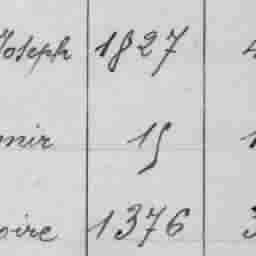 Joseph 1827 4
nir 15
oire 1376 3